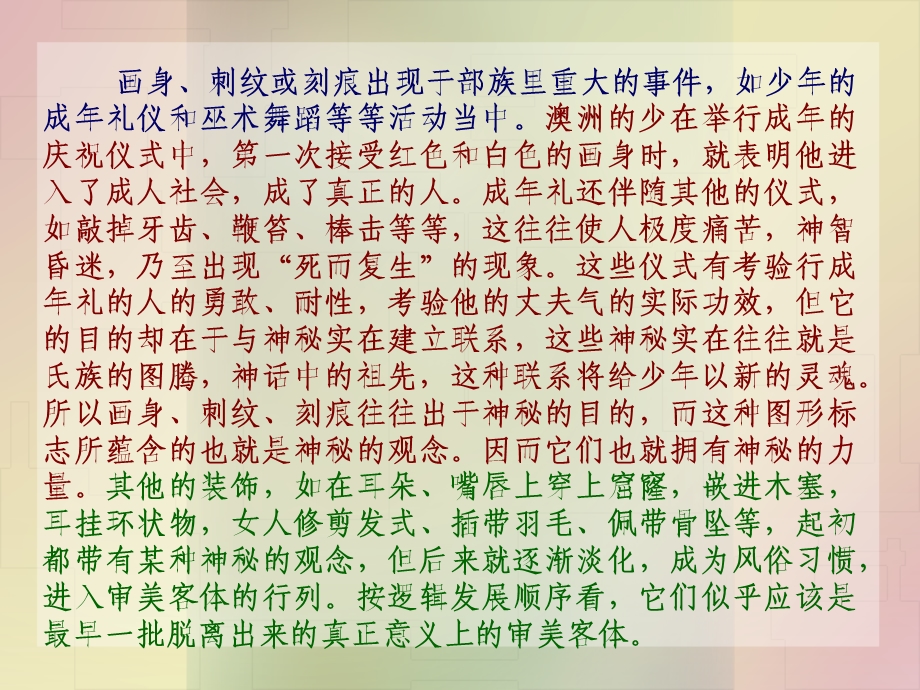 画身、刺纹或刻痕出现于部族里重大的事件，如少年的
成年礼仪和巫术舞蹈等等活动当中。澳洲的少在举行成年的
庆祝仪式中，第一次接受红色和白色的画身时，就表明他进
入了成人社会，成了真正的人。成年礼还伴随其他的仪式，
如敲掉牙齿、鞭笞、棒击等等，这往往使人极度痛苦，神智
昏迷，乃至出现“死而复生”的现象。这些仪式有考验行成
年礼的人的勇敢、耐性，考验他的丈夫气的实际功效，但它
的目的却在于与神秘实在建立联系，这些神秘实在往往就是
氏族的图腾，神话中的祖先，这种联系将给少年以新的灵魂。
所以画身、刺纹、刻痕往往出于神秘的目的，而这种图形标
志所蕴含的也就是神秘的观念。因而它们也就拥有神秘的力
量。其他的装饰，如在耳朵、嘴唇上穿上窟窿，嵌进木塞，
耳挂环状物，女人修剪发式、插带羽毛、佩带骨坠等，起初
都带有某种神秘的观念，但后来就逐渐淡化，成为风俗习惯，
进入审美客体的行列。按逻辑发展顺序看，它们似乎应该是
最早一批脱离出来的真正意义上的审美客体。